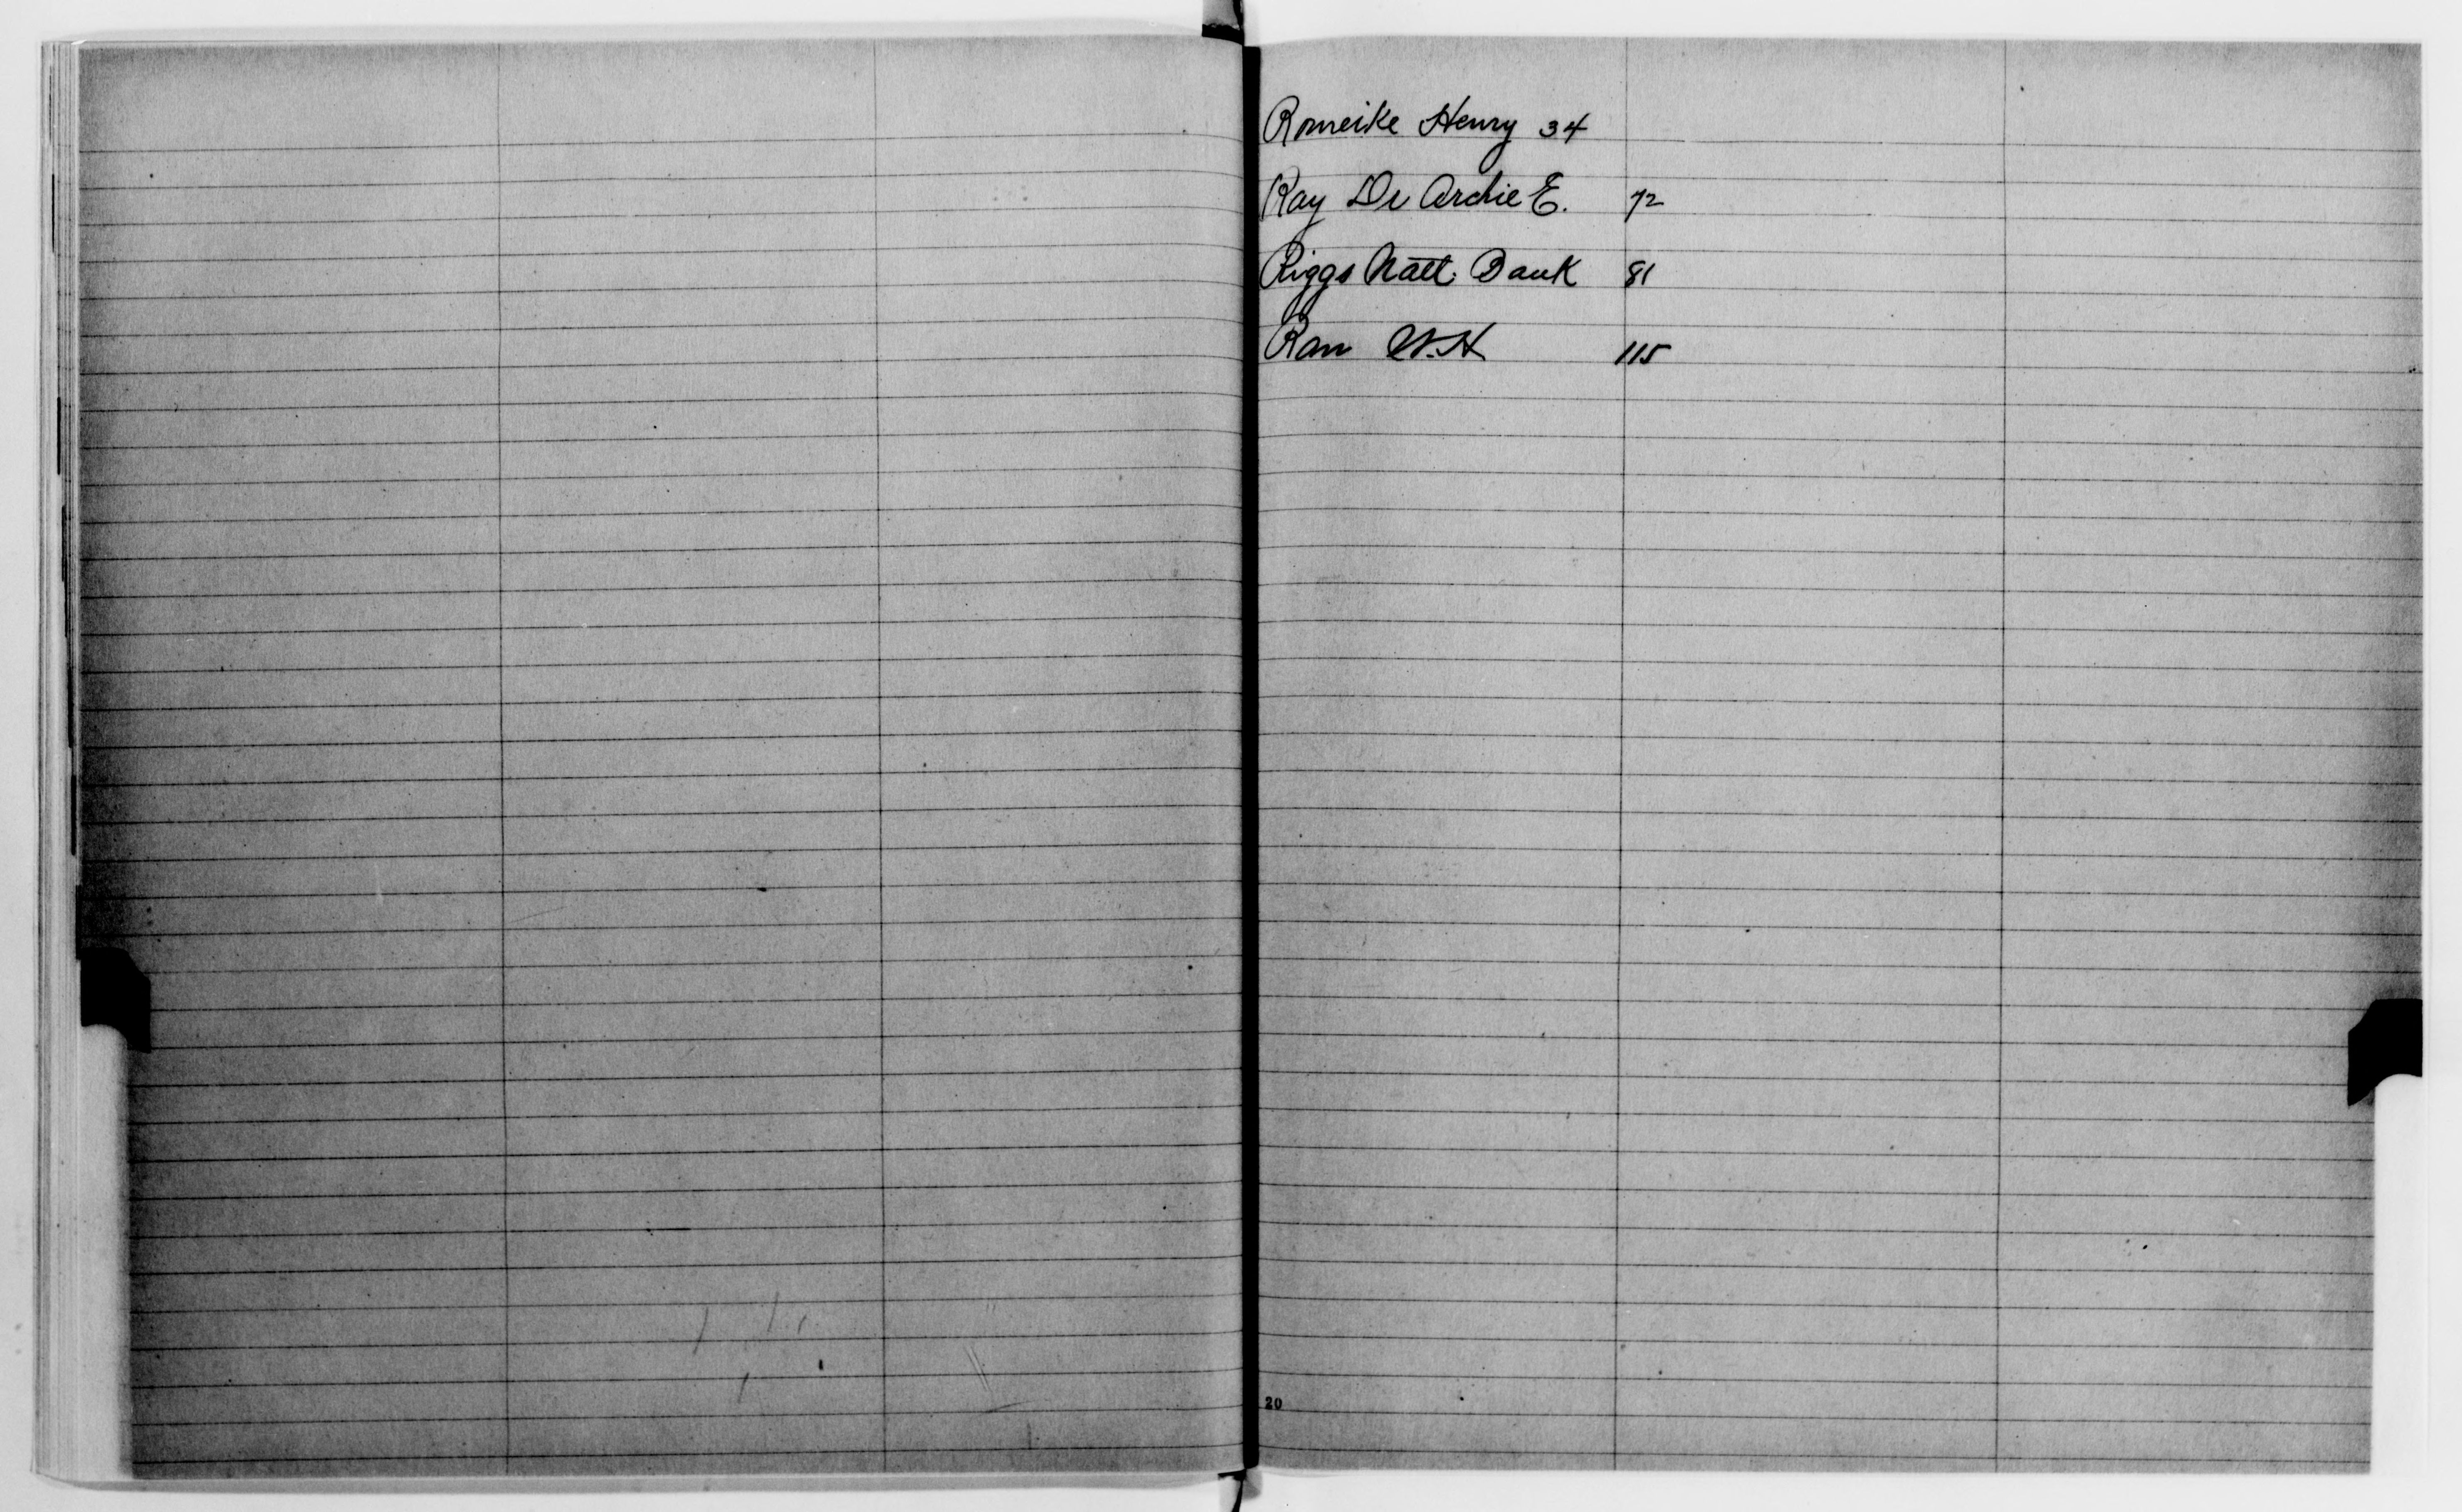 Romeike Henry 34
Ray Dr Archie E. 72
Riggs Natl. Bank 81
Rau W.H 115
20